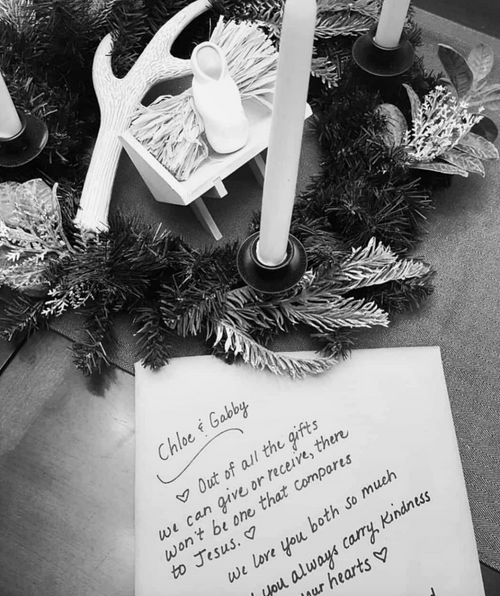 Chloe & Gabby
♡ Out of all the gifts
we can give or receive, there
won't be one that compares
to Jesus. ♡
we love you both so much
you always carry kindness
your hearts ♡